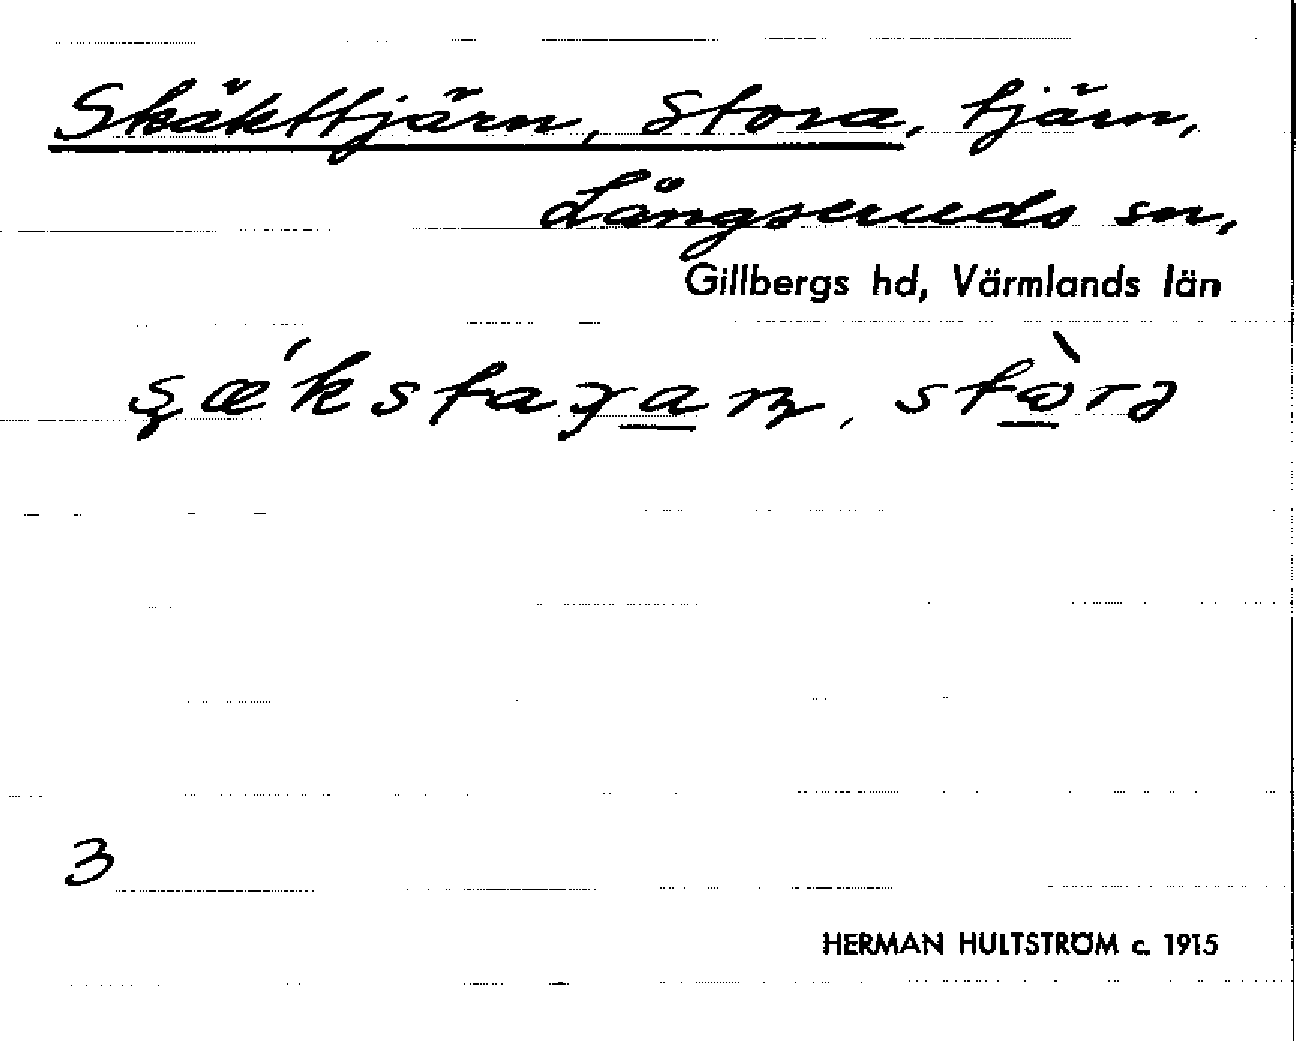 Skäkttjärn, Stora, tjärn,
Långseruds sn,
Gillbergs hd, Värmlands län
3
HERMAN HULTSTRÖM c. 1915